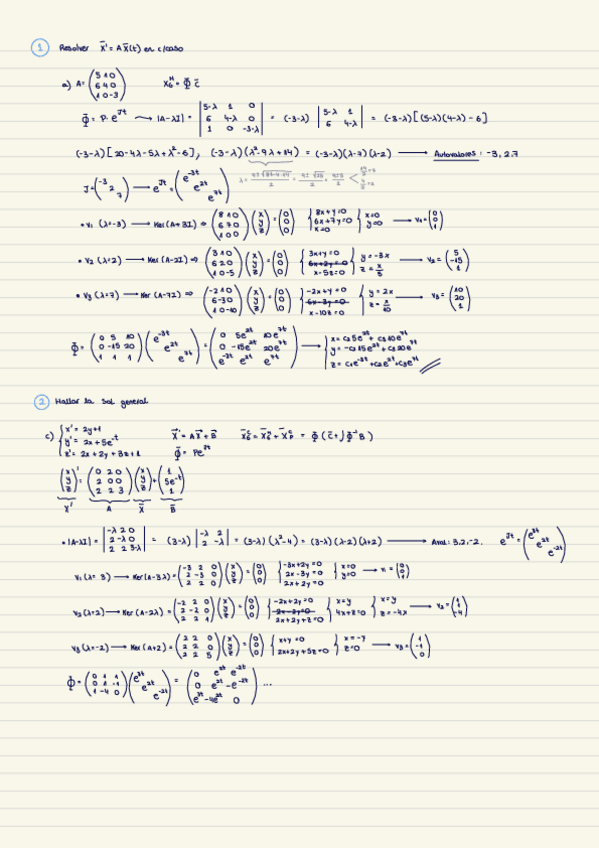 1 Resolver X̄' = A X̄(t) en c/caso
a) A = (5 1 0; 6 4 0; 1 0 -3) X_G^H = Φ̄ c̄
Φ̄ = P · e^{Jt} → |A-λI| = |5-λ 1 0; 6 4-λ 0; 1 0 -3-λ| = (-3-λ) |5-λ 1; 6 4-λ| = (-3-λ)[(5-λ)(4-λ) - 6]
(-3-λ)[20-4λ-5λ+λ²-6], (-3-λ)(λ²-9λ+14) = (-3-λ)(λ-7)(λ-2) → Autovalores: -3, 2, 7
J = (-3; 2; 7) → e^{Jt} = (e^{-3t}; e^{2t}; e^{7t})
• v₁ (λ=-3) → Ker(A+3I) ⇒ (8 1 0; 6 7 0; 1 0 0)(x; y; z) = (0; 0; 0) { 8x+y=0; 6x+7y=0; x=0 { x=0; y=0 → v₁ = (0; 0; 1)
• v₂ (λ=2) → Ker(A-2I) ⇒ (3 1 0; 6 2 0; 1 0 -5)(x; y; z) = (0; 0; 0) { 3x+y=0; 6x+2y=0; x-5z=0 { y=-3x; z=x/5 → v₂ = (5; -15; 1)
• v₃ (λ=7) → Ker(A-7I) ⇒ (-2 1 0; 6 -3 0; 1 0 -10)(x; y; z) = (0; 0; 0) { -2x+y=0; 6x-3y=0; x-10z=0 { y=2x; z=x/10 → v₃ = (10; 20; 1)
Φ̄ = (0 5 10; 0 -15 20; 1 1 1)(e^{-3t}; e^{2t}; e^{7t}) = (0 5e^{2t} 10e^{7t}; 0 -15e^{2t} 20e^{7t}; e^{-3t} e^{2t} e^{7t}) → { x = c₂5e^{2t} + c₃10e^{7t}; y = -c₂15e^{2t} + c₃20e^{7t}; z = c₁e^{-3t} + c₂e^{2t} + c₃e^{7t}
2 Hallar la sol general
c) { x' = 2y+1; y' = 2x+5e^{-t}; z' = 2x+2y+3z+1 X̄' = AX̄ + B̄ X̄_G^C = X̄_G^H + X̄_P^C = Φ̄(c̄ + ∫Φ̄⁻¹B)
Φ̄ = Pe^{Jt}
(x; y; z)' = (0 2 0; 2 0 0; 2 2 3)(x; y; z) + (1; 5e^{-t}; 1)
X̄' A X̄ B̄
• |A-λI| = |-λ 2 0; 2 -λ 0; 2 2 3-λ| = (3-λ) |-λ 2; 2 -λ| = (3-λ)(λ²-4) = (3-λ)(λ-2)(λ+2) → 3, 2, -2. e^{Jt} = (e^{3t}; e^{2t}; e^{-2t})
v₁ (λ=3) → Ker(A-3λ) = (-3 2 0; 2 -3 0; 2 2 0)(x; y; z) = (0; 0; 0) { -3x+2y=0; 2x-3y=0; 2x+2y=0 { x=0; y=0 → v₁ = (0; 0; 1)
v₂ (λ=2) → Ker(A-2λ) = (-2 2 0; 2 -2 0; 2 2 1)(x; y; z) = (0; 0; 0) { -2x+2y=0; 2x-2y=0; 2x+2y+z=0 { x=y; 4x+z=0 { x=y; z=-4x → v₂ = (1; 1; -4)
v₃ (λ=-2) → Ker(A+2) = (2 2 0; 2 2 0; 2 2 5)(x; y; z) = (0; 0; 0) { x+y=0; 2x+2y+5z=0 { x=-y; z=0 → v₃ = (1; -1; 0)
Φ̄ = (0 1 1; 0 1 -1; 1 -4 0)(e^{3t}; e^{2t}; e^{-2t}) = (0 e^{2t} e^{-2t}; 0 e^{2t} -e^{-2t}; e^{3t} -4e^{2t} 0) ...